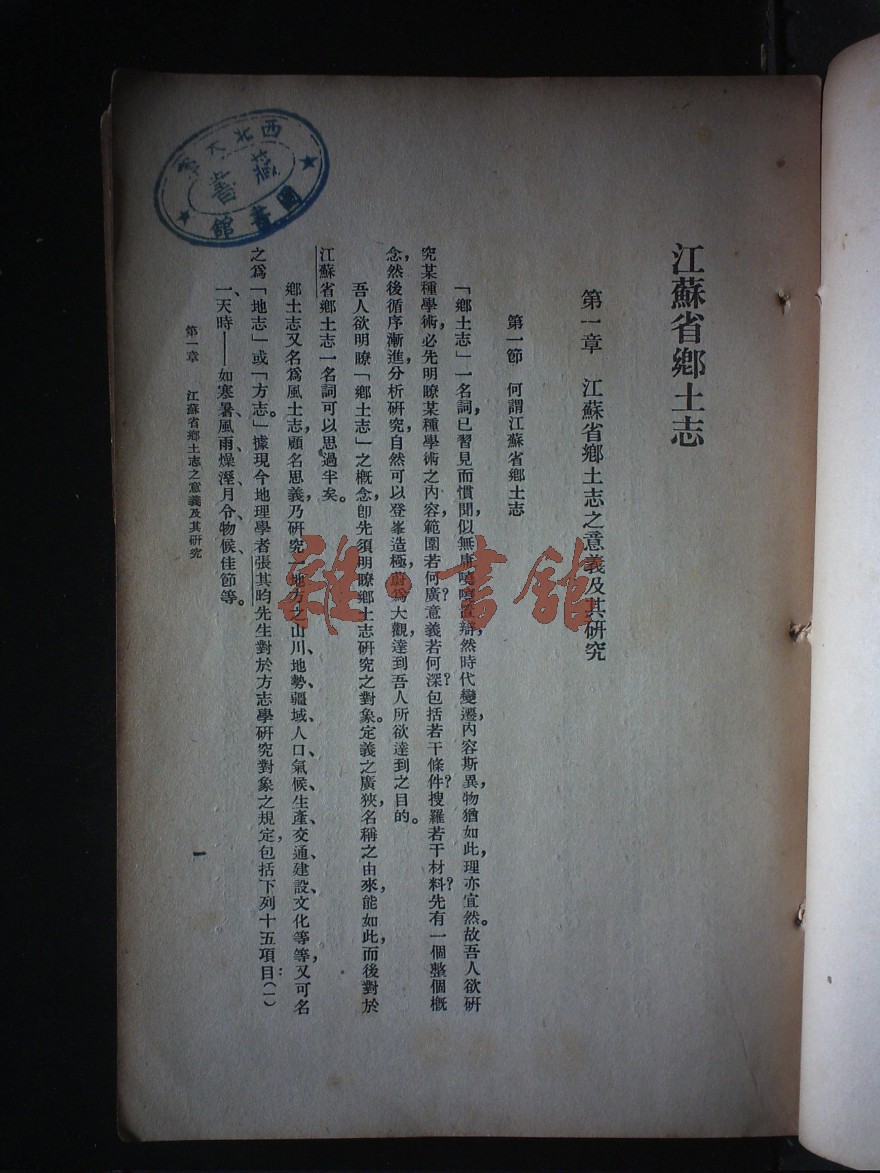 江蘇省鄉土志
第一章　江蘇省鄉土志之意義及其研究
第一節　何謂江蘇省鄉土志
「鄉土志」一名詞，已習見而慣聞，似無庸嘵嘵置辯，然時代變遷，內容斯異，物猶如此，理亦宜然。故吾人欲研
究某種學術，必先明瞭某種學術之內容，範圍若何廣？意義若何深？包括若干條件？搜羅若干材料？先有一個整個概
念，然後循序漸進，分析研究，自然可以登峯造極，蔚爲大觀，達到吾人所欲達到之目的。
吾人欲明瞭「鄉土志」之概念，卽先須明瞭鄉土志研究之對象。定義之廣狹，名稱之由來，能如此，而後對於
江蘇省鄉土志一名詞可以思過半矣。
鄉土志又名爲風土志，顧名思義，乃研究一地方之山川、地勢、疆域、人口、氣候、生產、交通、建設、文化等等，又可名
之爲「地志」或「方志」。據現今地理學者張其昀先生對於方志學研究對象之規定，包括下列十五項目：(一)
一、天時——如寒暑、風雨、燥溼、月令、物候、佳節等。
第一章　江蘇省鄉土志之意義及其研究
一
西北大學
圖書館
藏書
雜·書館